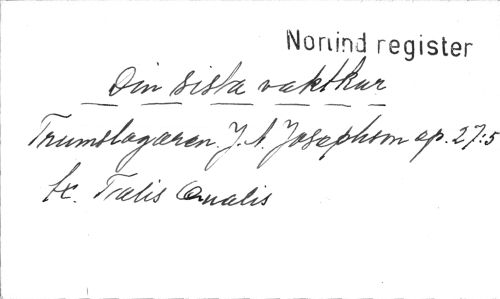 Norlind register
Din sista vaktkur
Trumslagaren. J. A. Josephson op. 27:5
tx. Talis Qualis